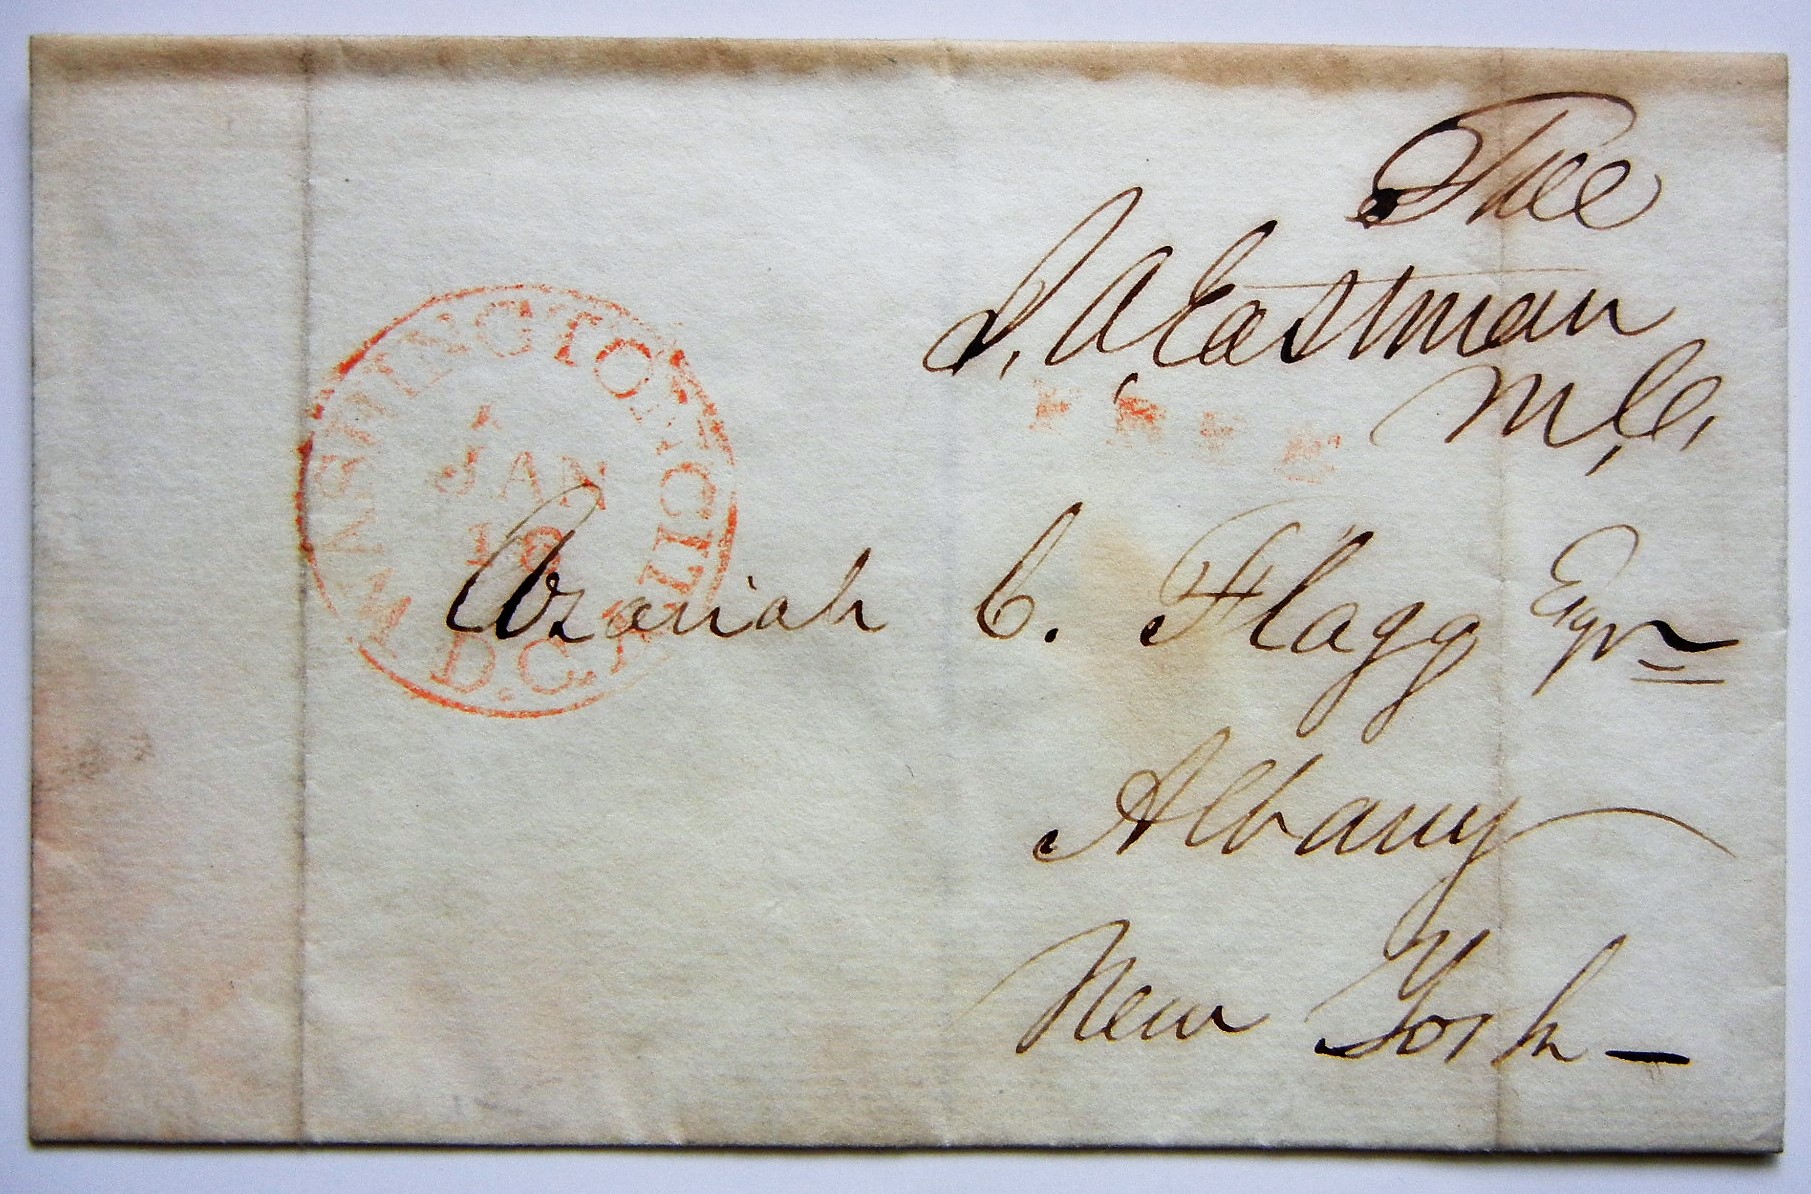 Free
I. A. Eastman
M.C.
FREE
WASHINGTON CITY
JAN
D.C.
Azariah C. Flagg Esqr
Albany
New York —